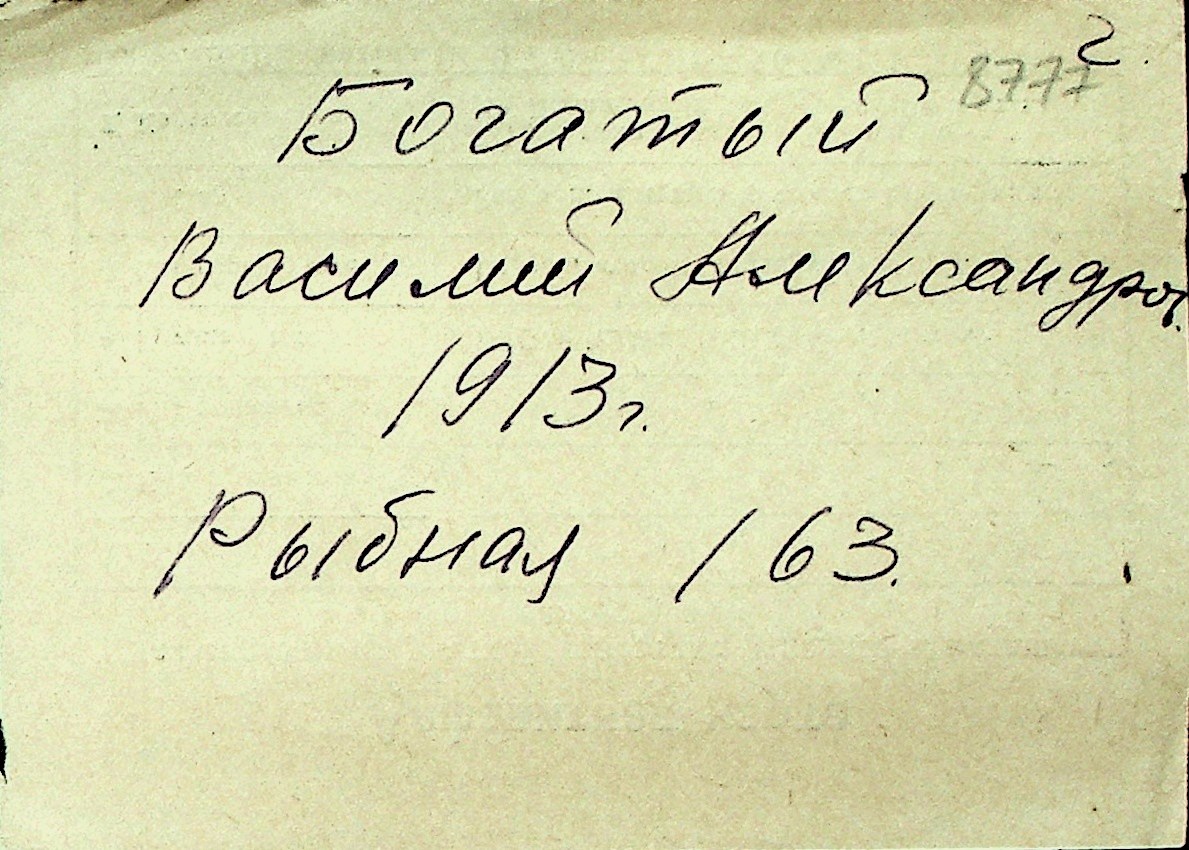 2
8777
Богатый
Василий Александров.
1913 г.
Рыбная 163.